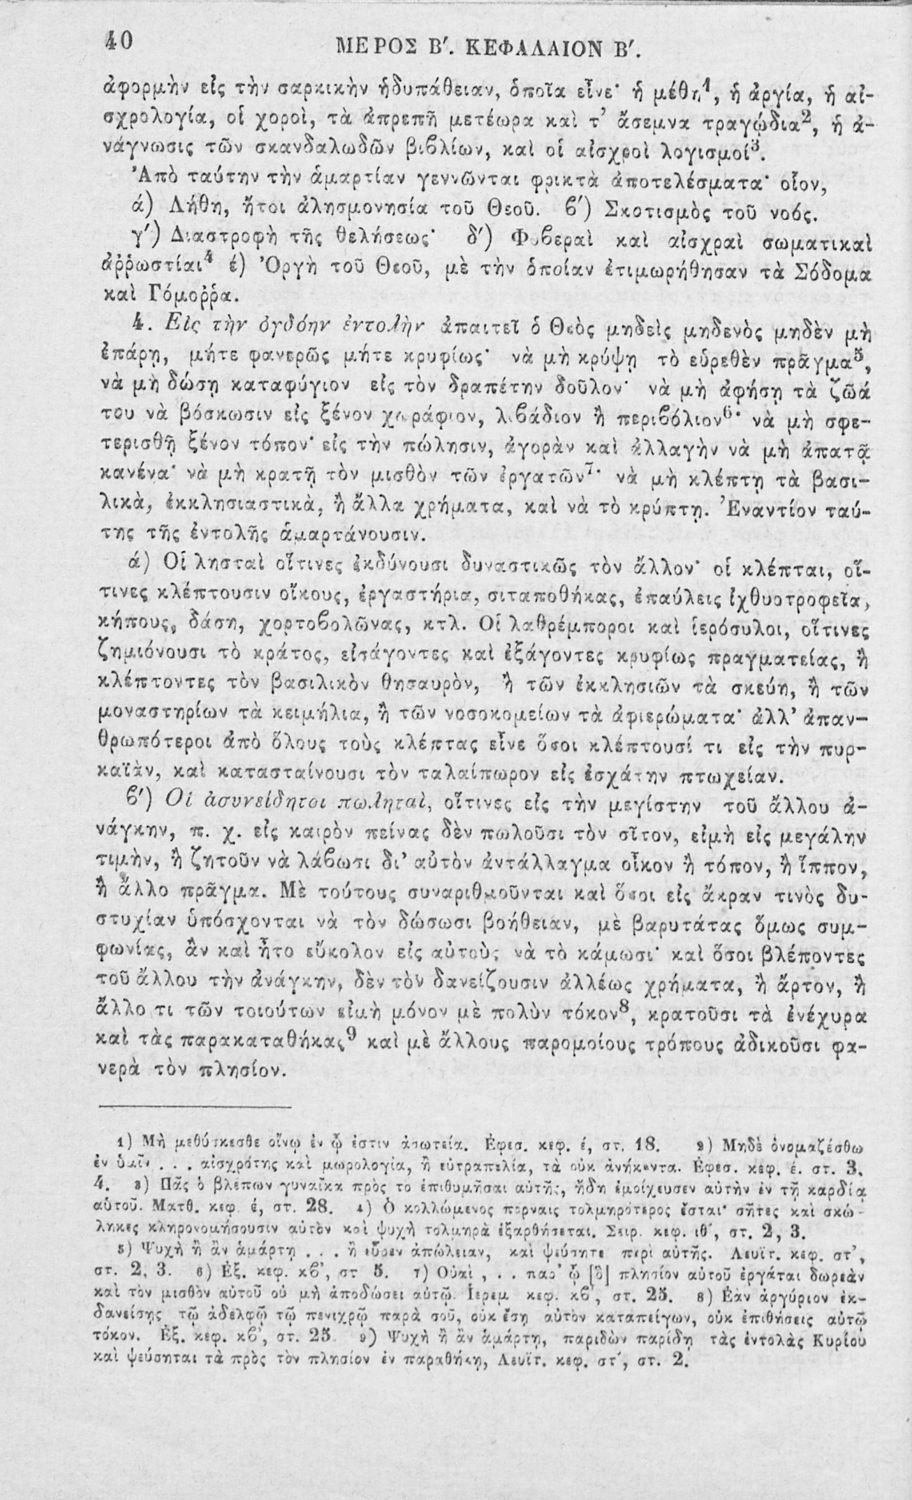 40
ΜΕΡΟΣ Β′. ΚΕΦΑΛΑΙΟΝ Β′.
ἀφορμὴν εἰς τὴν σαρκικὴν ἡδυπάθειαν, ὁποῖα εἶνε· ἡ μέθη¹, ἡ ἀργία, ἡ αἰ-
σχρολογία, οἱ χοροὶ, τὰ ἀπρεπῆ μετέωρα καὶ τ’ ἄσεμνα τραγῴδια², ἡ ἀ-
νάγνωσις τῶν σκανδαλωδῶν βιβλίων, καὶ οἱ αἰσχροὶ λογισμοί³.
Ἀπὸ ταύτην τὴν ἁμαρτίαν γεννῶνται φρικτὰ ἀποτελέσματα· οἷον,
ά) Λήθη, ἤτοι ἀλησμονησία τοῦ Θεοῦ. β′) Σκοτισμὸς τοῦ νοός.
γ′) Διαστροφὴ τῆς θελήσεως· δ′) Φοβεραὶ καὶ αἰσχραὶ σωματικαὶ
ἀῤῥωστίαι⁴ έ) Ὀργὴ τοῦ Θεοῦ, μὲ τὴν ὁποίαν ἐτιμωρήθησαν τὰ Σόδομα
καὶ Γόμοῤῥα.
4. Εἰς τὴν ὀγδόην ἐντολὴν ἀπαιτεῖ ὁ Θεὸς μηδεὶς μηδενὸς μηδὲν μὴ
ἐπάρῃ, μήτε φανερῶς μήτε κρυφίως· νὰ μὴ κρύψῃ τὸ εὑρεθὲν πρᾶγμα⁵,
νὰ μὴ δώσῃ καταφύγιον εἰς τὸν δραπέτην δοῦλον· νὰ μὴ ἀφήσῃ τὰ ζῶά
του νὰ βόσκωσιν εἰς ξένον χωράφιον, λιβάδιον ἢ περιβόλιον⁶· νὰ μὴ σφε-
τερισθῇ ξένον τόπον· εἰς τὴν πώλησιν, ἀγορὰν καὶ ἀλλαγὴν νὰ μὴ ἀπατᾷ
κανένα· νὰ μὴ κρατῇ τὸν μισθὸν τῶν ἐργατῶν⁷· νὰ μὴ κλέπτῃ τὰ βασι-
λικὰ, ἐκκλησιαστικὰ, ἢ ἄλλα χρήματα, καὶ νὰ τὸ κρύπτῃ. Ἐναντίον ταύ-
της τῆς ἐντολῆς ἁμαρτάνουσιν.
ά) Οἱ λησταὶ οἵτινες ἐκδύνουσι δυναστικῶς τὸν ἄλλον· οἱ κλέπται, οἵ-
τινες κλέπτουσιν οἴκους, ἐργαστήρια, σιταποθήκας, ἐπαύλεις ἰχθυοτροφεῖα,
κήπους, δάση, χορτοβολῶνας, κτλ. Οἱ λαθρέμποροι καὶ ἱερόσυλοι, οἵτινες
ζημιόνουσι τὸ κράτος, εἰσάγοντες καὶ ἐξάγοντες κρυφίως πραγματείας, ἢ
κλέπτοντες τὸν βασιλικὸν θησαυρὸν, ἢ τῶν ἐκκλησιῶν τὰ σκεύη, ἢ τῶν
μοναστηρίων τὰ κειμήλια, ἢ τῶν νοσοκομείων τὰ ἀφιερώματα· ἀλλ’ ἀπαν-
θρωπότεροι ἀπὸ ὅλους τοὺς κλέπτας εἶνε ὅσοι κλέπτουσί τι εἰς τὴν πυρ-
καϊὰν, καὶ κατασταίνουσι τὸν ταλαίπωρον εἰς ἐσχάτην πτωχείαν.
β′) Οἱ ἀσυνείδητοι πωληταὶ, οἵτινες εἰς τὴν μεγίστην τοῦ ἄλλου ἀ-
νάγκην, π. χ. εἰς καιρὸν πείνας δὲν πωλοῦσι τὸν σῖτον, εἰμὴ εἰς μεγάλην
τιμὴν, ἢ ζητοῦν νὰ λάβωσι δι’ αὐτὸν ἀντάλλαγμα οἶκον ἢ τόπον, ἢ ἵππον,
ἢ ἄλλο πρᾶγμα. Μὲ τούτους συναριθμοῦνται καὶ ὅσοι εἰς ἄκραν τινὸς δυ-
στυχίαν ὑπόσχονται νὰ τὸν δώσωσι βοήθειαν, μὲ βαρυτάτας ὅμως συμ-
φωνίας, ἂν καὶ ἦτο εὔκολον εἰς αὐτοὺς νὰ τὸ κάμωσι· καὶ ὅσοι βλέποντες
τοῦ ἄλλου τὴν ἀνάγκην, δὲν τὸν δανείζουσιν ἀλλέως χρήματα, ἢ ἄρτον, ἢ
ἄλλο τι τῶν τοιούτων εἰμὴ μόνον μὲ πολὺν τόκον⁸, κρατοῦσι τὰ ἐνέχυρα
καὶ τὰς παρακαταθήκας⁹ καὶ μὲ ἄλλους παρομοίους τρόπους ἀδικοῦσι φα-
νερὰ τὸν πλησίον.
1) Μὴ μεθύσκεσθε οἴνῳ ἐν ᾧ ἐστιν ἀσωτεία. Ἐφεσ. κεφ. έ, στ. 18. 2) Μηδὲ ὀνομαζέσθω
ἐν ὑμῖν . . . αἰσχρότης καὶ μωρολογία, ἢ εὐτραπελία, τὰ οὐκ ἀνήκοντα. Ἐφεσ. κεφ. έ. στ. 3,
4. 3) Πᾶς ὁ βλέπων γυναῖκα πρὸς το ἐπιθυμῆσαι αὐτῆς, ἤδη ἐμοίχευσεν αὐτὴν ἐν τῇ καρδίᾳ
αὐτοῦ. Ματθ. κεφ. έ, στ. 28. 4) Ὁ κολλώμενος πόρναις τολμηρότερος ἔσται· σῆτες καὶ σκώ-
ληκες κληρονομήσουσιν αὐτὸν καὶ ψυχὴ τολμηρὰ ἐξαρθήσεται. Σειρ. κεφ. ιθ′, στ. 2, 3.
5) Ψυχὴ ἣ ἂν ἁμάρτῃ . . . ἢ εὗρεν ἀπώλειαν, καὶ ψεύσηται περὶ αὐτῆς. Λευϊτ. κεφ. στ′,
στ. 2, 3. 6) Ἐξ. κεφ. κβ′, στ 5. 7) Οὐαὶ , . . παρ’ ᾧ [ὁ] πλησίον αὐτοῦ ἐργάται δωρεὰν
καὶ τὸν μισθὸν αὐτοῦ οὐ μὴ ἀποδώσει αὐτῷ. Ἱερεμ κεφ. κβ′, στ. 25. 8) Ἐὰν ἀργύριον ἐκ-
δανείσῃς τῷ ἀδελφῷ τῷ πενιχρῷ παρὰ σοῦ, οὐκ ἔσῃ αὐτὸν καταπείγων, οὐκ ἐπιθήσεις αὐτῷ
τόκον. Ἐξ. κεφ. κβ′, στ. 25. 9) Ψυχὴ ἣ ἂν ἁμάρτῃ, παριδὼν παρίδῃ τὰς ἐντολὰς Κυρίου
καὶ ψεύσηται τὰ πρὸς τὸν πλησίον ἐν παραθήκῃ, Λευϊτ. κεφ. στ′, στ. 2.